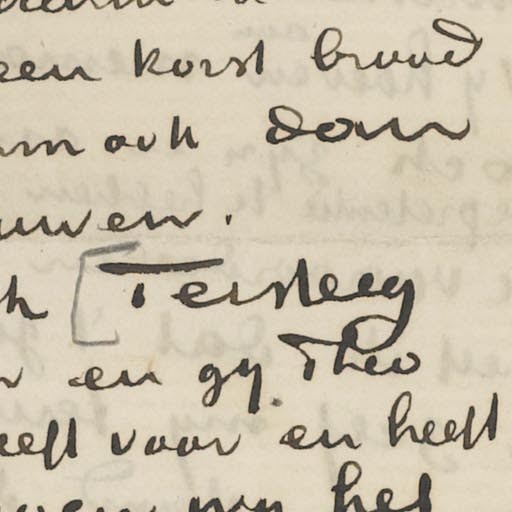 een korst brood
ook dan
uwen.
[Tersteeg
en gy Theo
eeft voor en heeft
my het